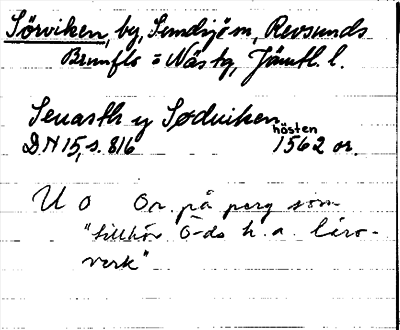 Sörviken, by, Sundsjö sn, Revsunds
Brunflo o Näs tg, Jämtl. l.
Seuasth y Søduiken
hösten
DN 15, s. 816 1562 or.
U o Or. på perg som
"tillhör Ö-ds h. a. läro-
verk"